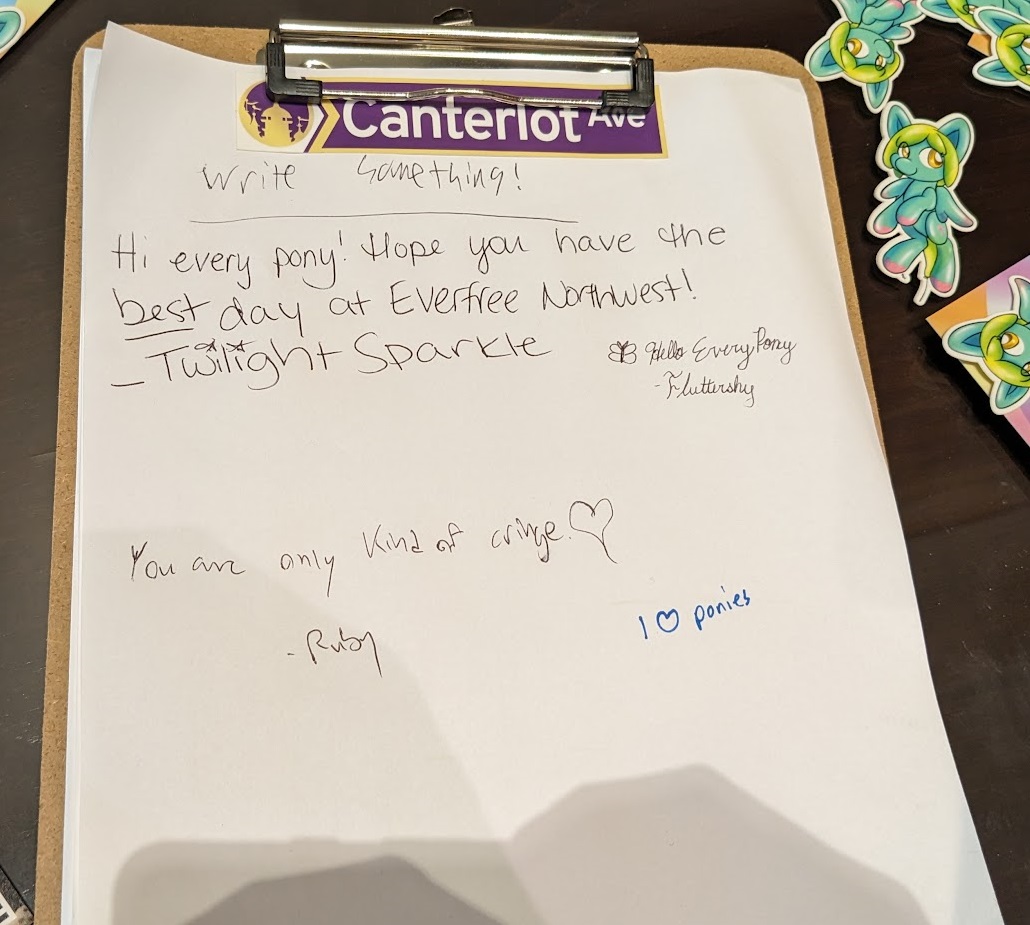 Canterlot Ave
Write Something!
Hi every pony! Hope you have the
best day at Everfree Northwest!
- Twilight Sparkle
Hello EveryPony
- Fluttershy
You are only kind of cringe.♡
- Ruby
I ♡ ponies